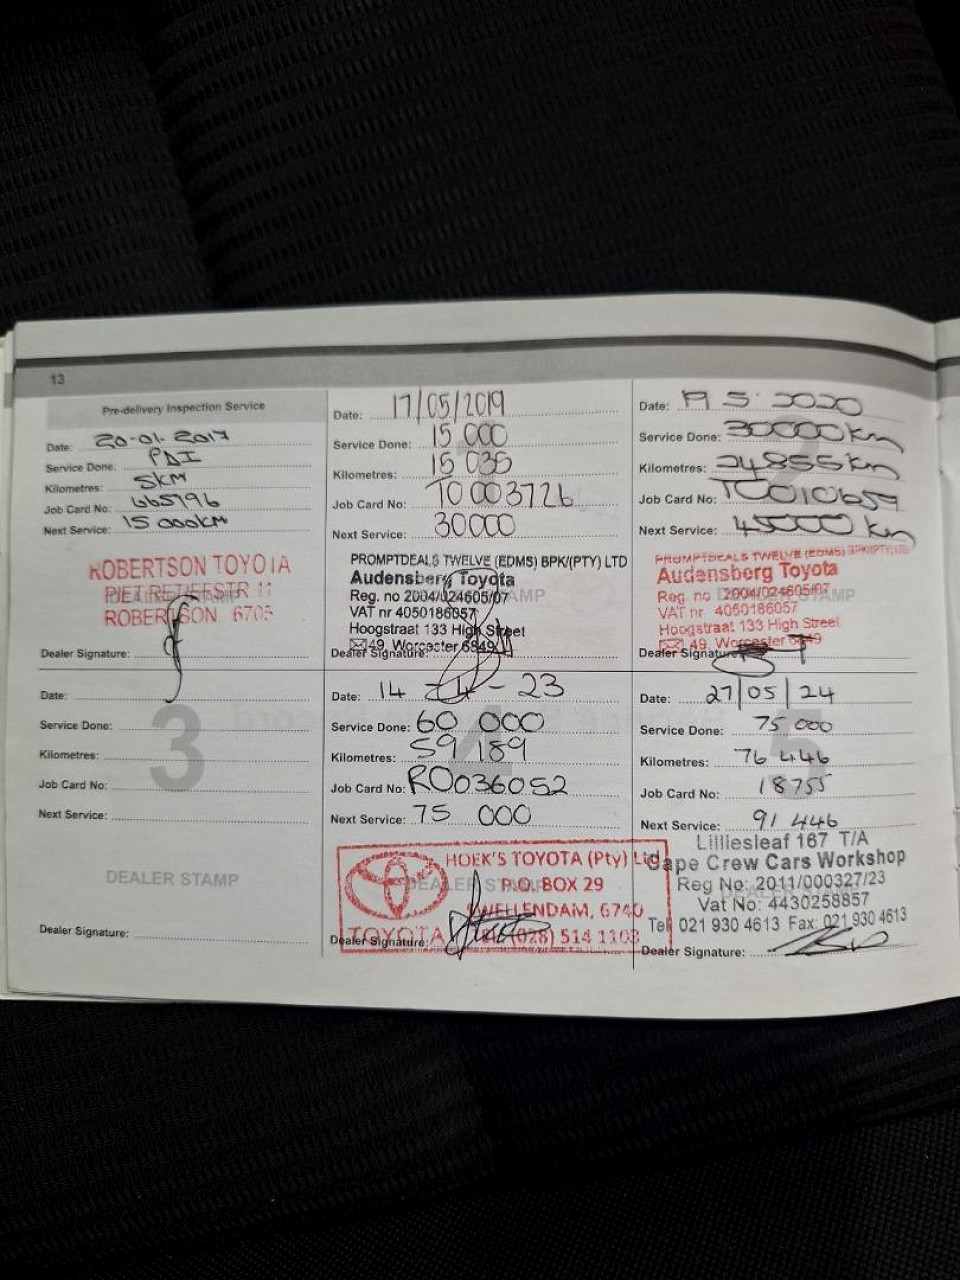 13
Pre-delivery Inspection Service
Date: 20-01-2017
Service Done: PDI
Kilometres: 5KM
Job Card No: 665796
Next Service: 15 000KM
ROBERTSON TOYOTA
PIET RETIEFSTR 11
ROBERTSON 6705
Dealer Signature:
Date: 17/05/2019
Service Done: 15 000
Kilometres: 15 035
Job Card No: TO 003726
Next Service: 30000
PROMPTDEALS TWELVE (EDMS) BPK/(PTY) LTD
Audensberg Toyota
Reg. no 2004/024605/07
VAT nr 4050186057
Hoogstraat 133 High Street
49, Worcester 6849
Dealer Signature:
Date: 19 5 2020
Service Done: 30000 km
Kilometres: 24855 km
Job Card No: TO010659
Next Service: 45000 km
PROMPTDEALS TWELVE (EDMS) BPK/(PTY) LTD
Audensberg Toyota
Reg. no 2004/024605/07
VAT nr 4050186057
Hoogstraat 133 High Street
49, Worcester 6849
Dealer Signature:
3
Date:
Service Done:
Kilometres:
Job Card No:
Next Service:
DEALER STAMP
Dealer Signature:
Date: 14 - 4 - 23
Service Done: 60 000
Kilometres: 59 189
Job Card No: RO036052
Next Service: 75 000
HOEK'S TOYOTA (Pty) Ltd
P.O. BOX 29
SWELLENDAM, 6740
TOYOTA Tel: (028) 514 1103
Dealer Signature:
Date: 27/05/24
Service Done: 75 000
Kilometres: 76 446
Job Card No: 18755
Next Service: 91 446
Lilliesleaf 167 T/A
Cape Crew Cars Workshop
Reg No: 2011/000327/23
Vat No: 4430258857
Tel 021 930 4613 Fax: 021 930 4613
Dealer Signature: